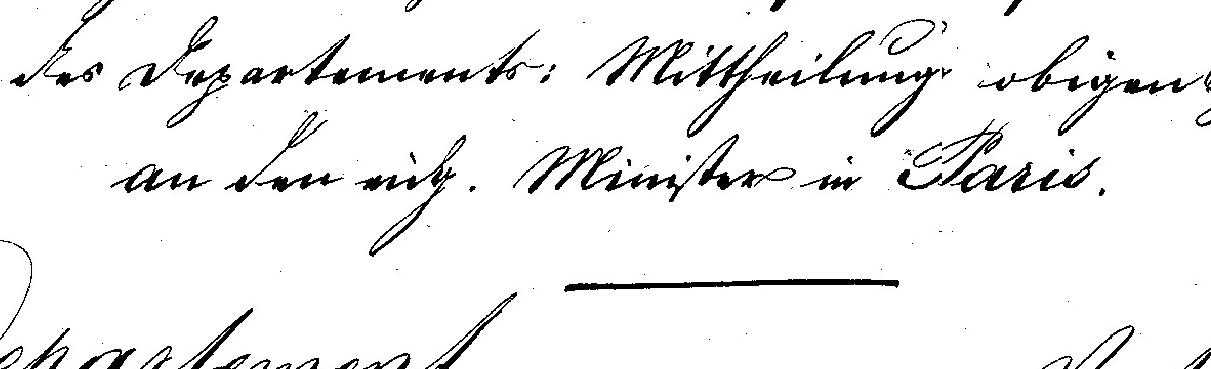 des Departements: Mittheilung obigen
an den eidg. Minister in Paris.
Departement